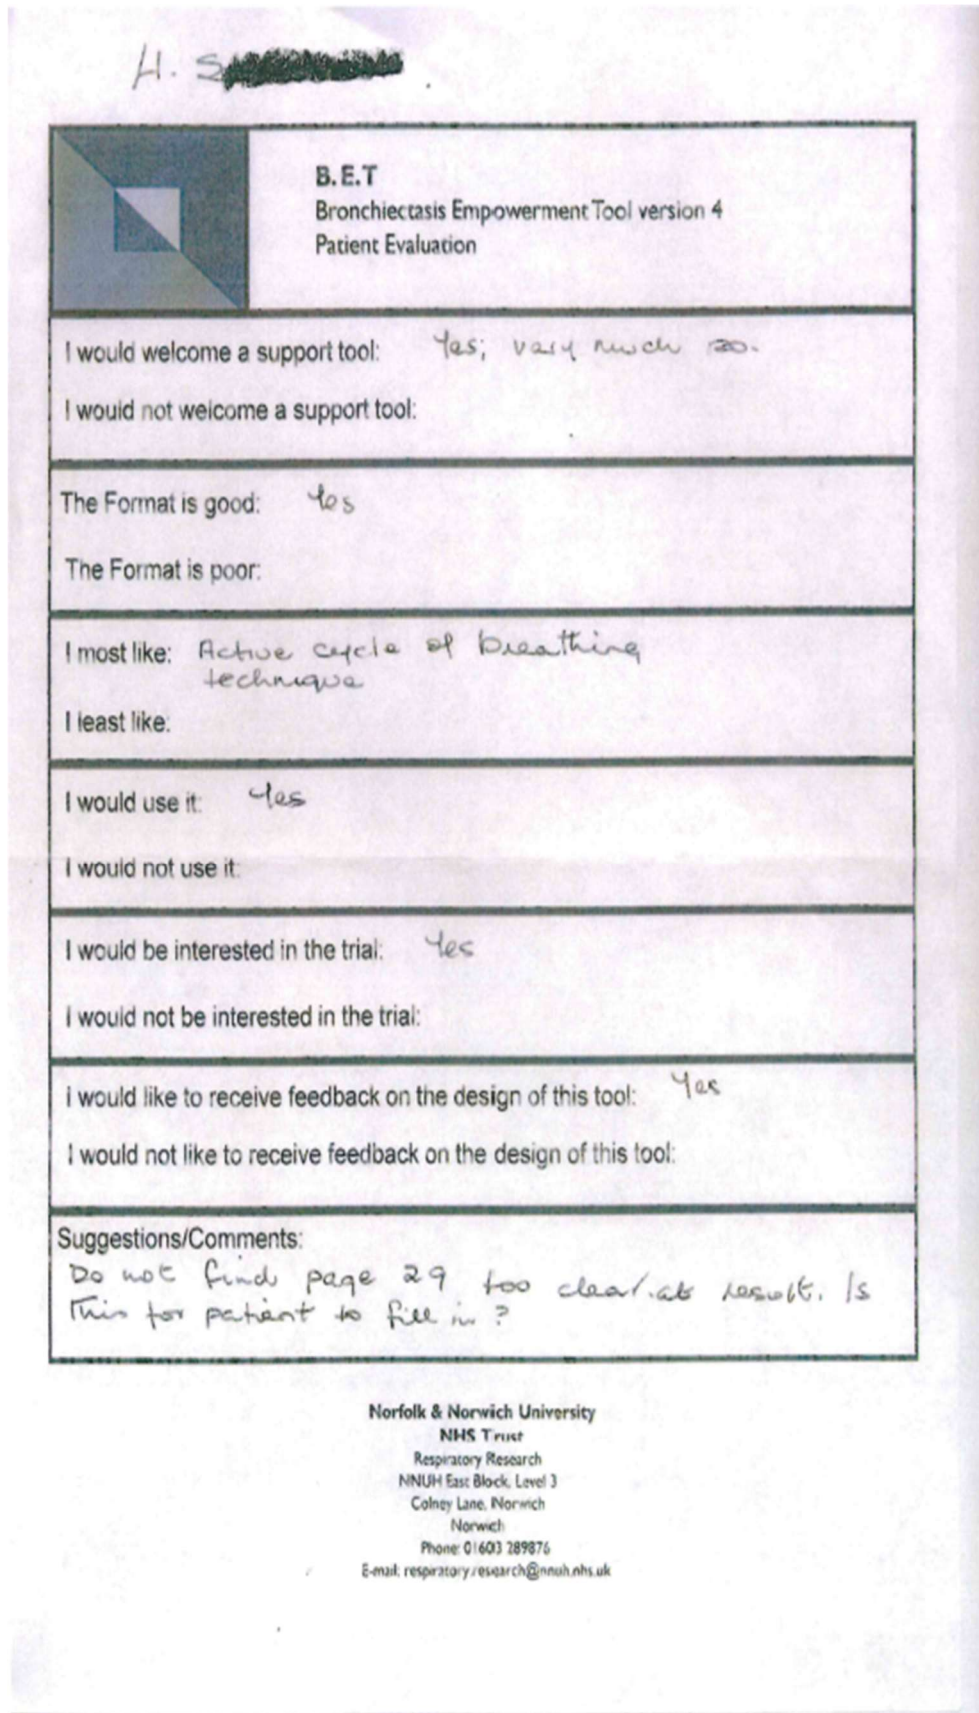 H. S
B.E.T
Bronchiectasis Empowerment Tool version 4
Patient Evaluation
I would welcome a support tool: Yes; very much so.
I would not welcome a support tool:
The Format is good: Yes
The Format is poor:
I most like: Active cycle of breathing
technique
I least like:
I would use it: Yes
I would not use it:
I would be interested in the trial: Yes
I would not be interested in the trial:
I would like to receive feedback on the design of this tool: Yes
I would not like to receive feedback on the design of this tool:
Suggestions/Comments:
Do not find page 29 too clear. at result. Is
this for patient to fill in?
Norfolk & Norwich University
NHS Trust
Respiratory Research
NNUH East Block, Level 3
Colney Lane, Norwich
Norwich
Phone: 01603 289876
E-mail: respiratory.research@nnuh.nhs.uk